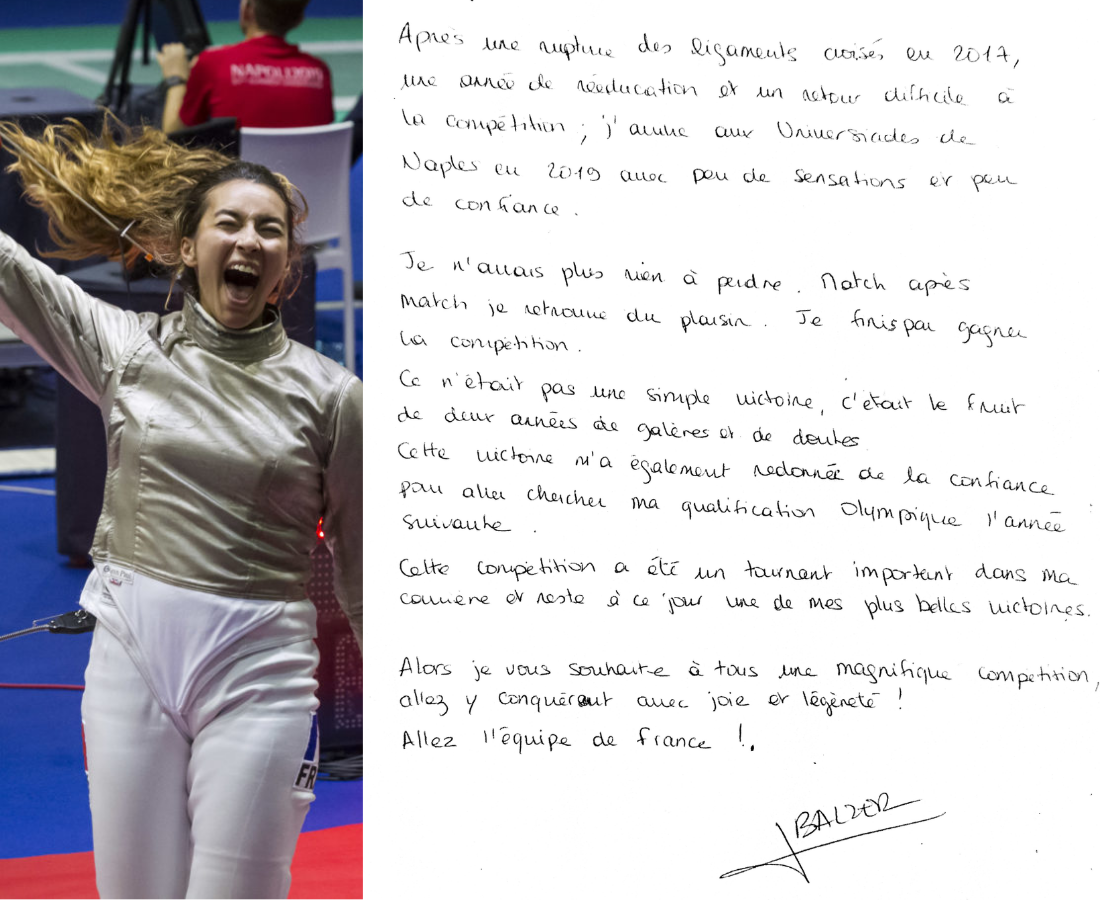 NAPOLI2019
FR
Après une rupture des ligaments croisés en 2017,
une année de rééducation et un retour difficile à
la compétition ; j'arrive aux Universiades de
Naples en 2019 avec peu de sensations et peu
de confiance.
Je n'avais plus rien à perdre. Match après
match je retrouve du plaisir. Je finis par gagner
la compétition.
Ce n'était pas une simple victoire, c'était le fruit
de deux années de galères et de doutes
Cette victoire m'a également redonnée de la confiance
pour aller chercher ma qualification Olympique l'année
suivante.
Cette compétition a été un tournant important dans ma
carrière et reste à ce jour une de mes plus belles victoires.
Alors je vous souhaite à tous une magnifique compétition,
allez y conquérant avec joie et légèreté !
Allez l'équipe de france !.
BALZER